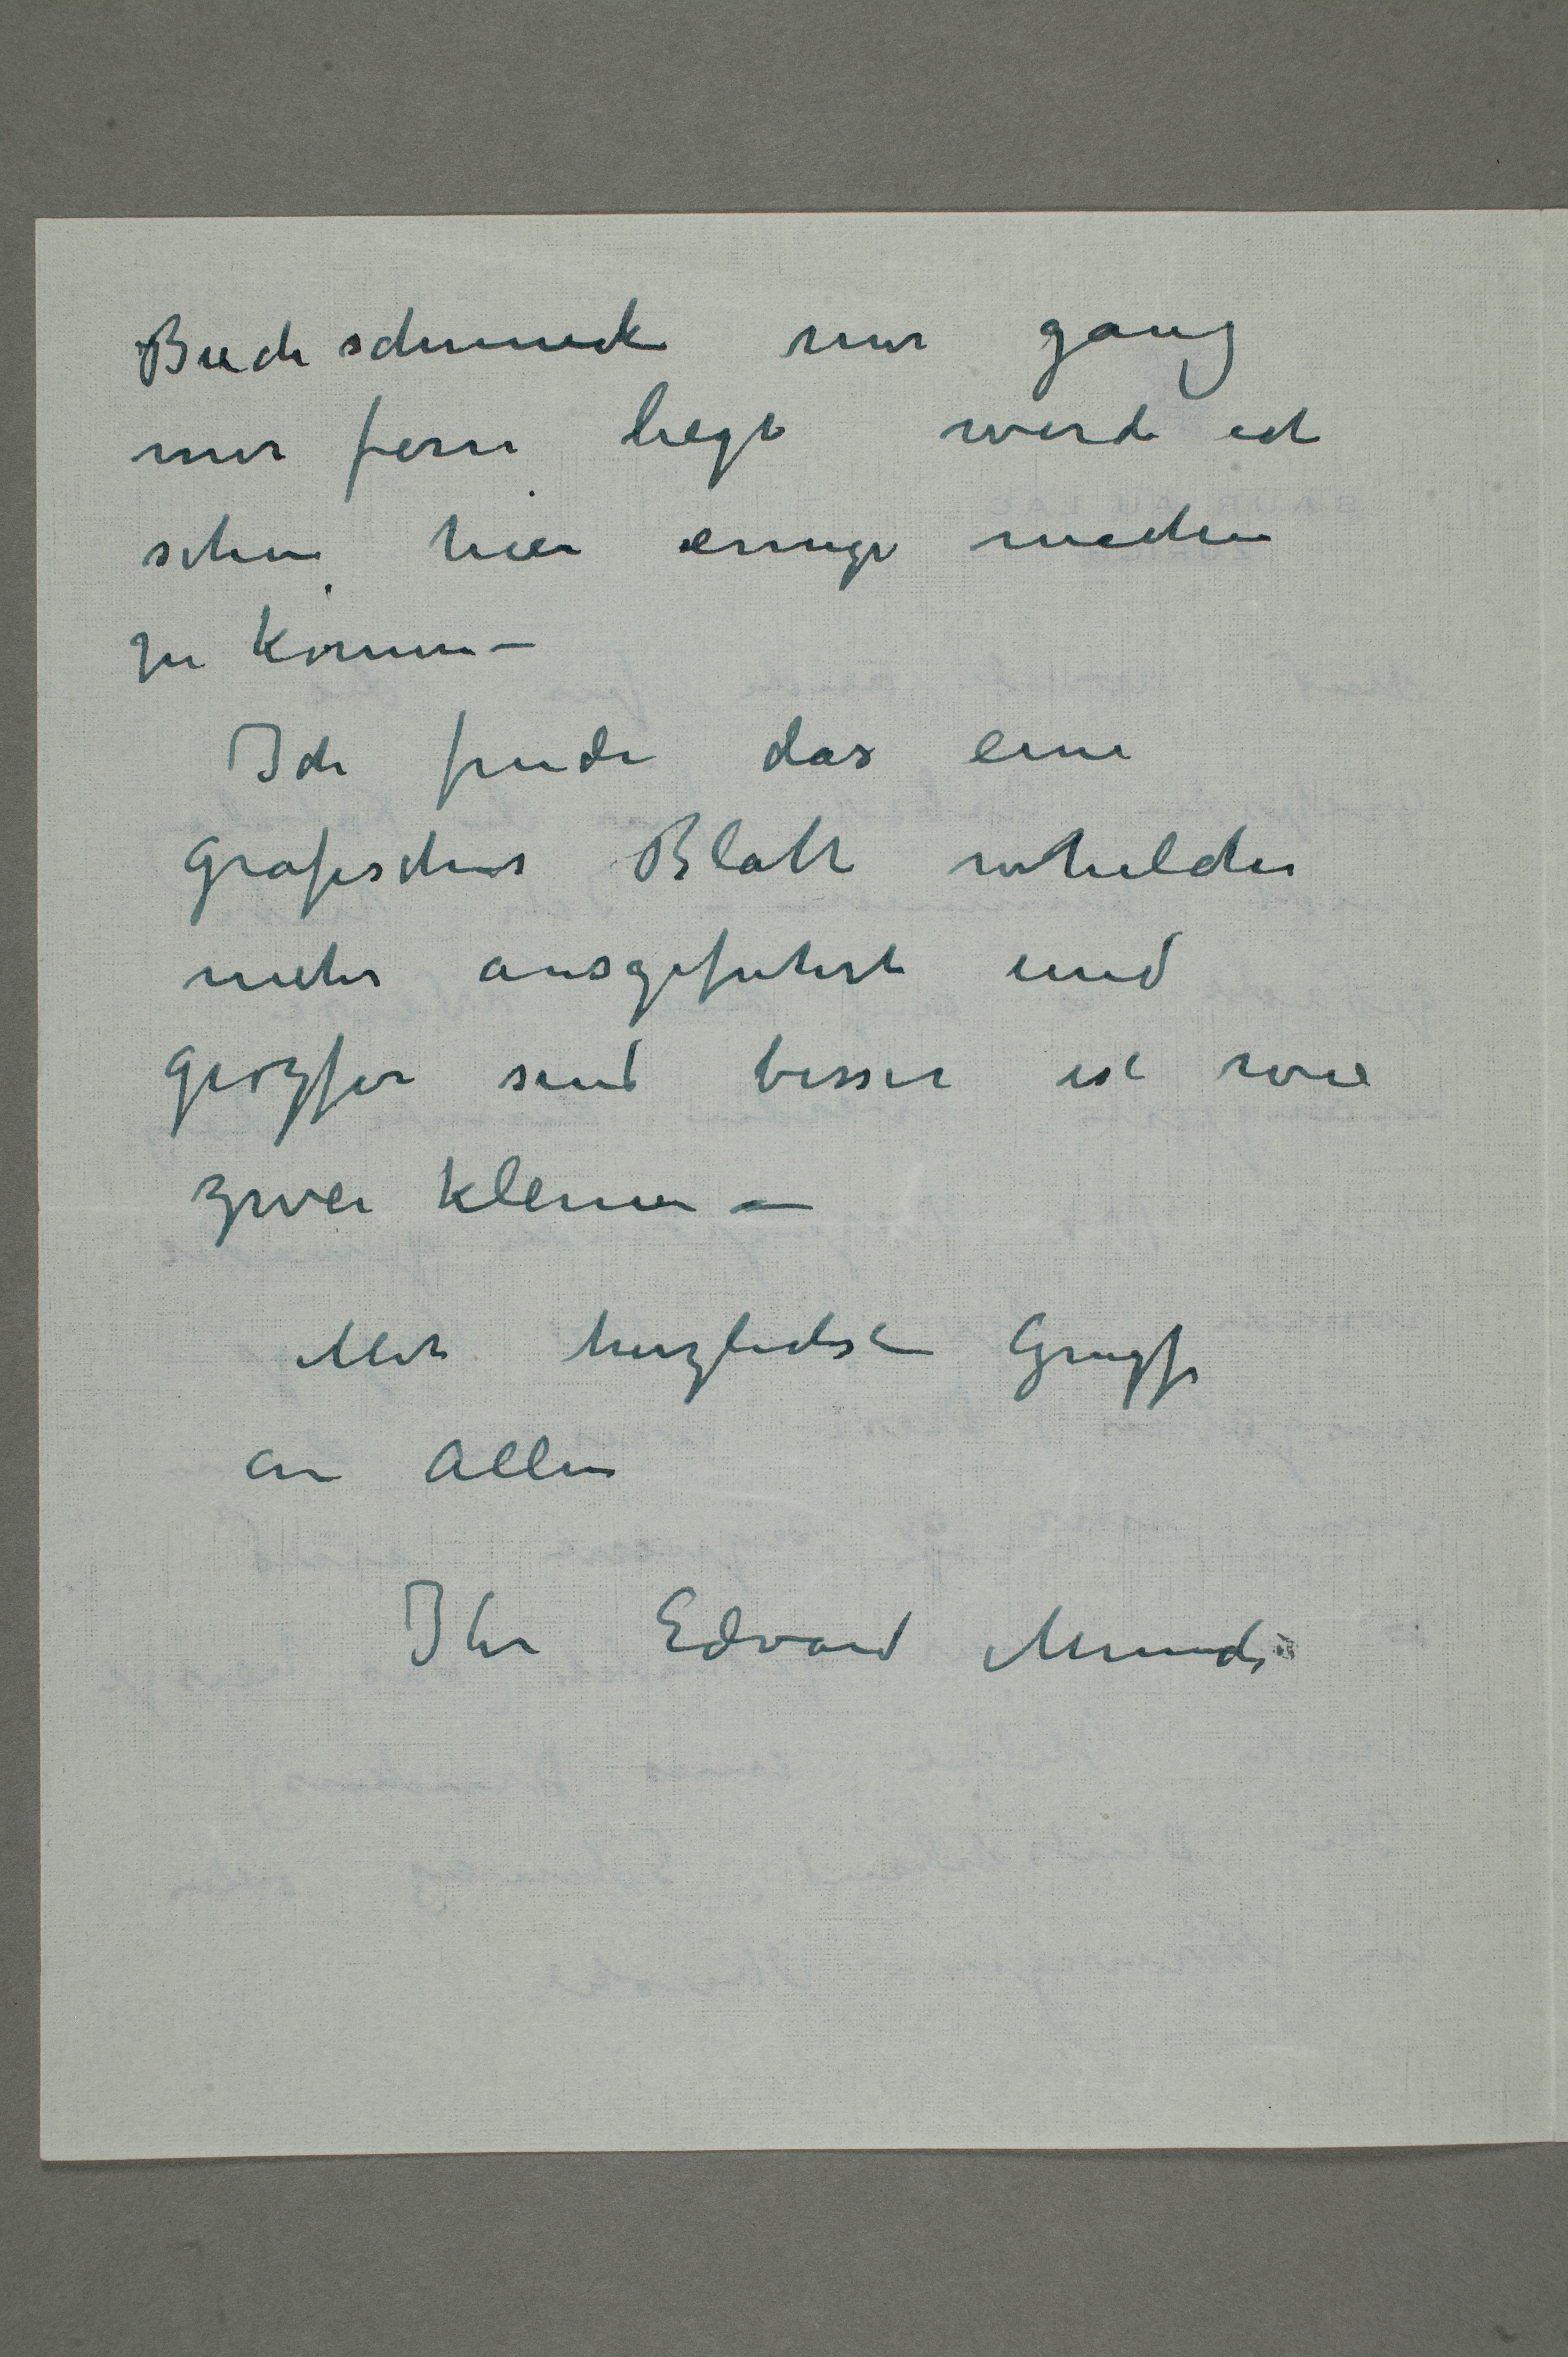 Buchschmuck mir ganz
mir fern liegt werde ich
sehen hier einige machen
zu können –
Ich finde das eine
grafisches Blatt welches
mehr ausgefuhrt und
grözser sind besser ist wie
zwei kleine –
Mit herzlichsten Gruzse
an Allen
Ihr Edvard Munch